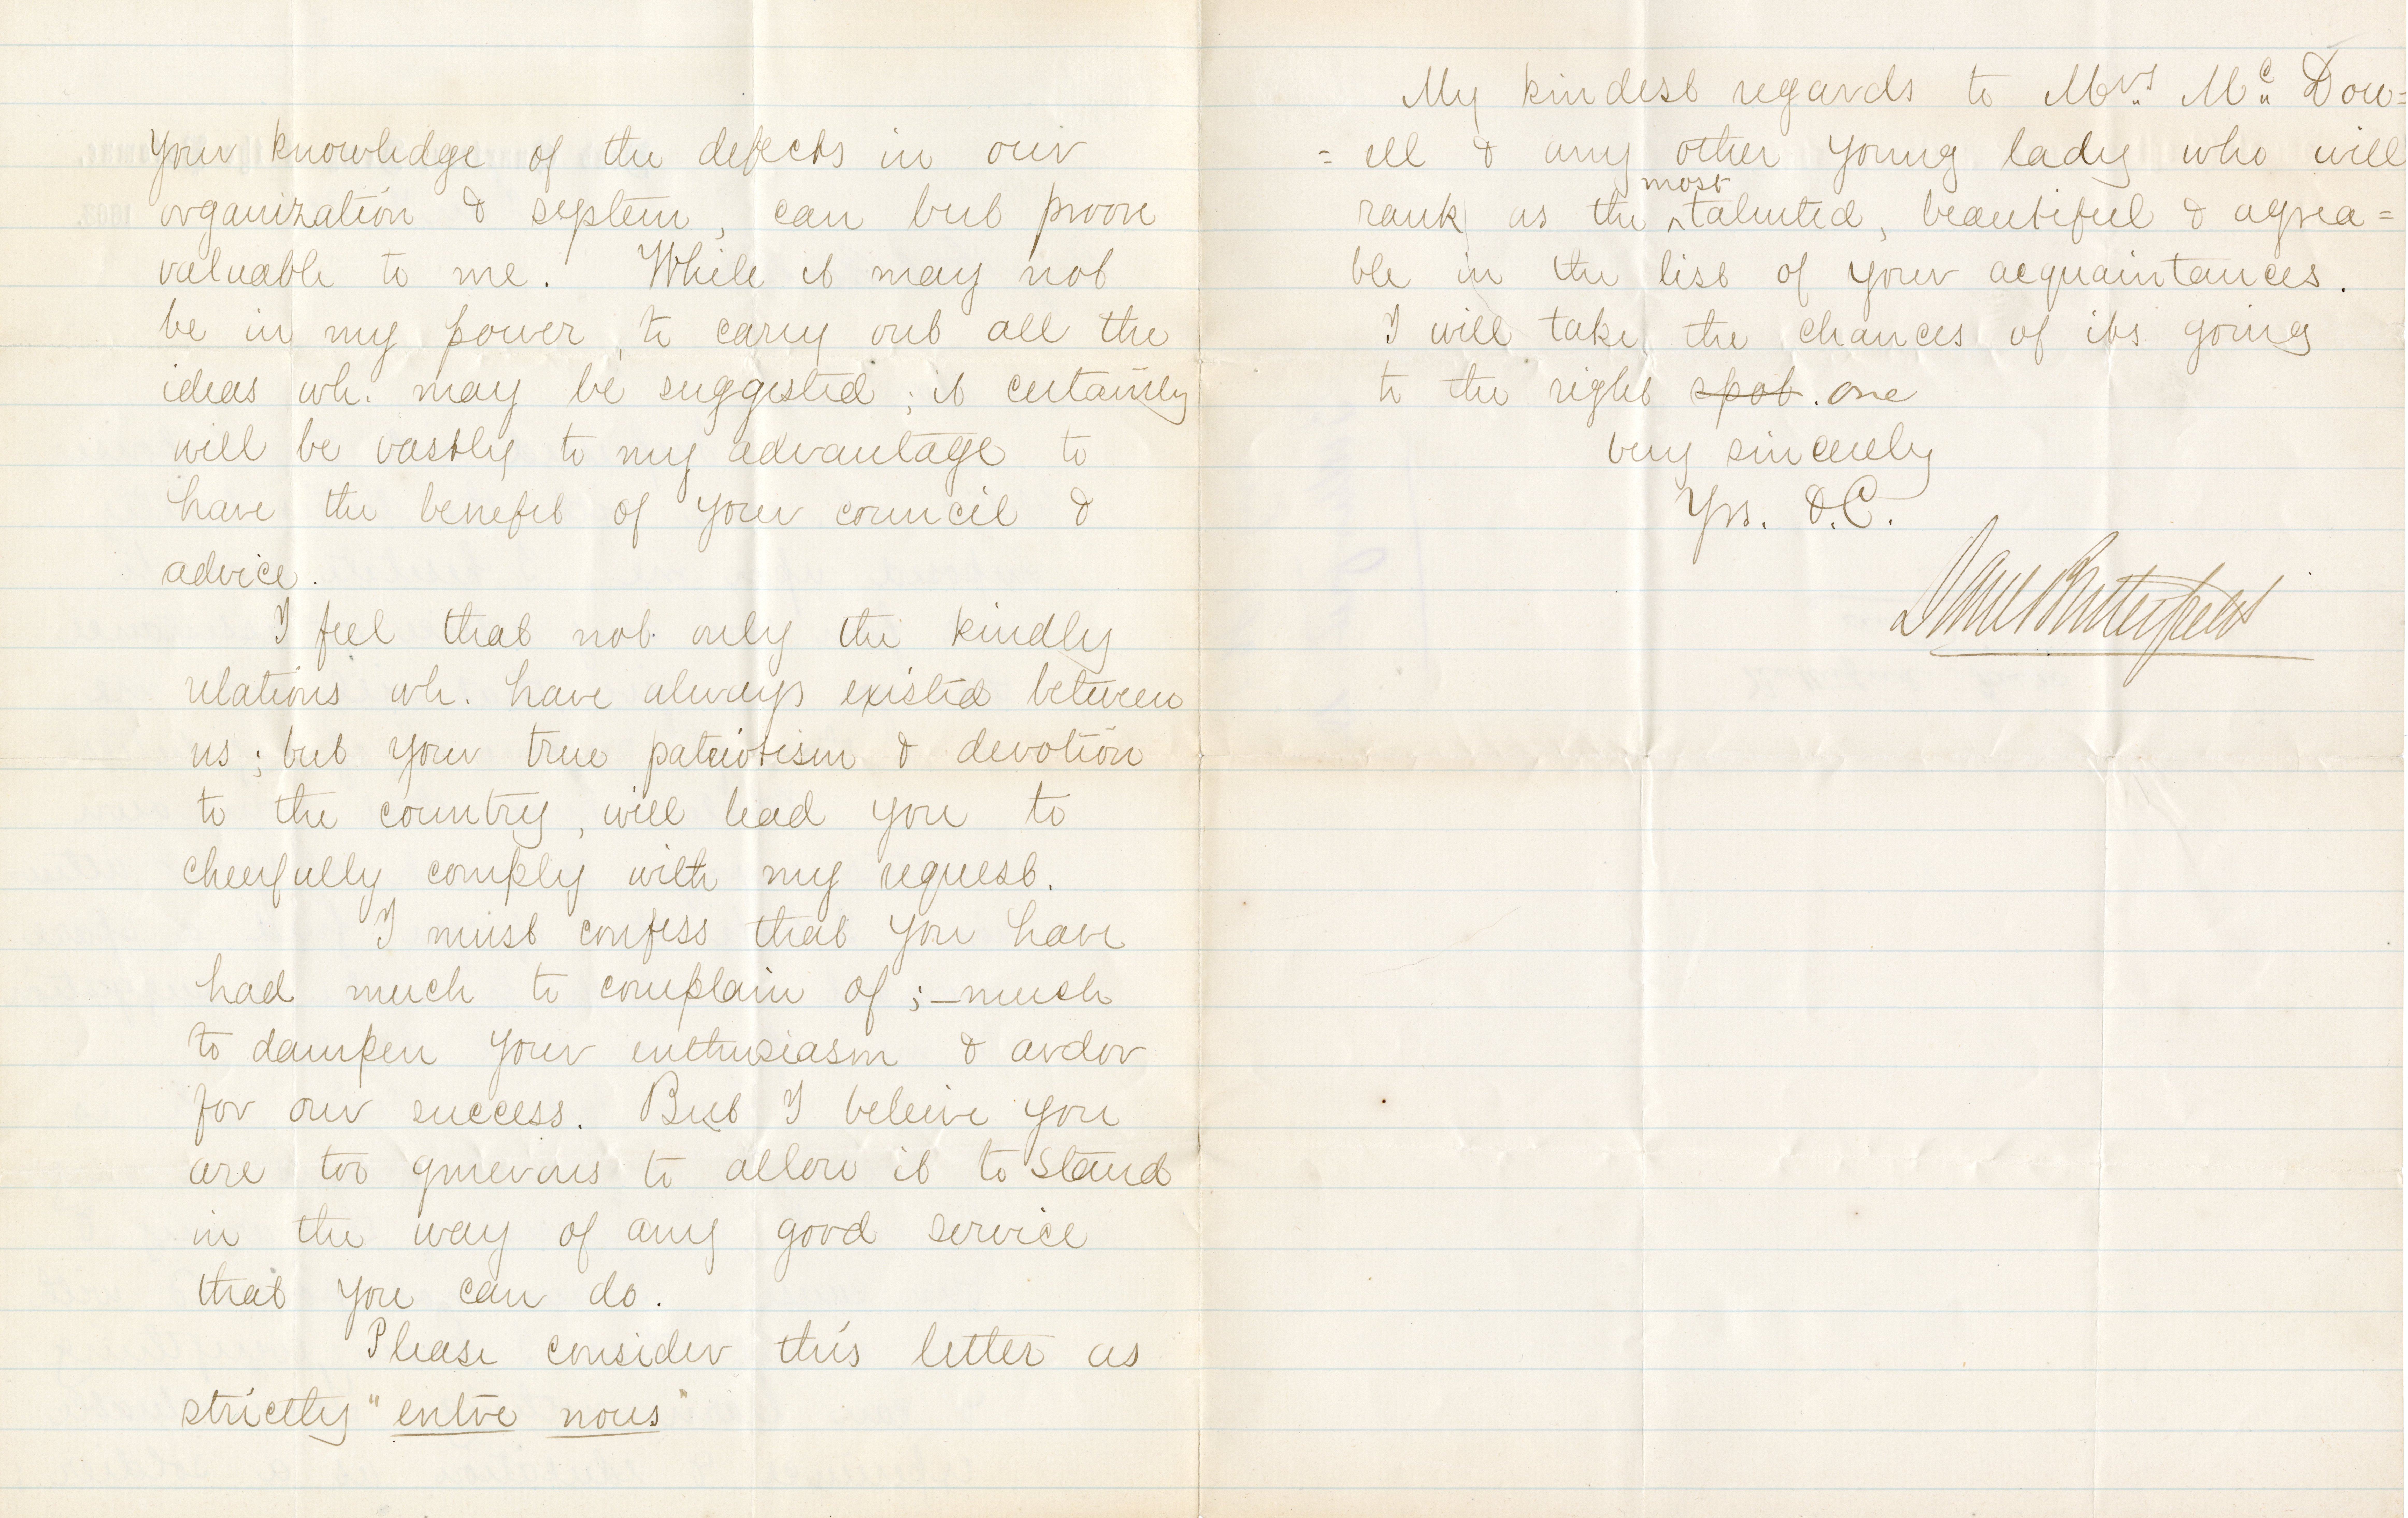 your knowledge of the defects in our
organization & system, can but prove
valuable to me. While it may not
be in my power, to carry out all the
ideas wh. may be suggested; it certainly
will be vastly to my advantage to
have the benefit of your council &
advice.
I feel that not only the kindly
relations wh. have always existed between
us; but your true patriotism & devotion
to the country, will lead you to
cheerfully comply with my request.
I must confess that you have
had much to complain of;—much
to dampen your enthusiasm & ardor
for our success. But I beleive you
are too generous to allow it to stand
in the way of any good service
that you can do.
Please consider this letter as
strictly "entre nous"
My kindest regards to Mrs McDow=
=ell & any other young lady who will
rank as the most talented, beautiful & agrea=
ble in the list of your acquaintances.
I will take the chances of its going
to the right spot. one
very sincerely
Yrs. &.C.
Danl Butterfield